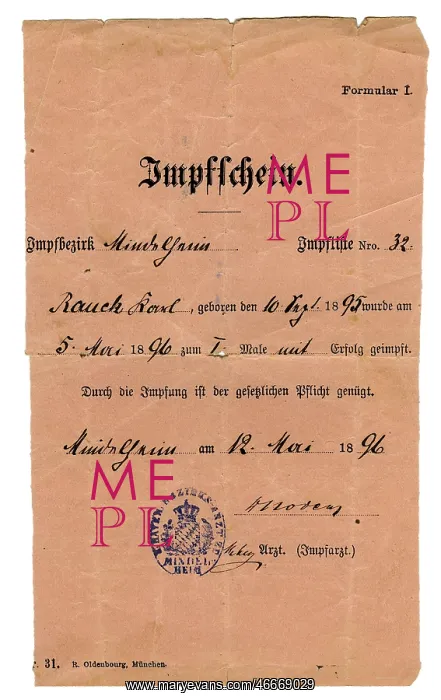 Formular I.
Impfschein.
ME
PL
Impfbezirk Mindelheim Impfliste Nro. 32.
Rauck Karl, geboren den 10. Sept. 1895 wurde am
5. Mai 1896 zum I. Male mit Erfolg geimpft.
Durch die Impfung ist der gesetzlichen Pflicht genügt.
Mindelheim am 12. Mai 1896
ME
PL
MINDEL-
HEIM
Arzt. (Impfarzt.)
31. R. Oldenbourg, München.
www.maryevans.com/46669029